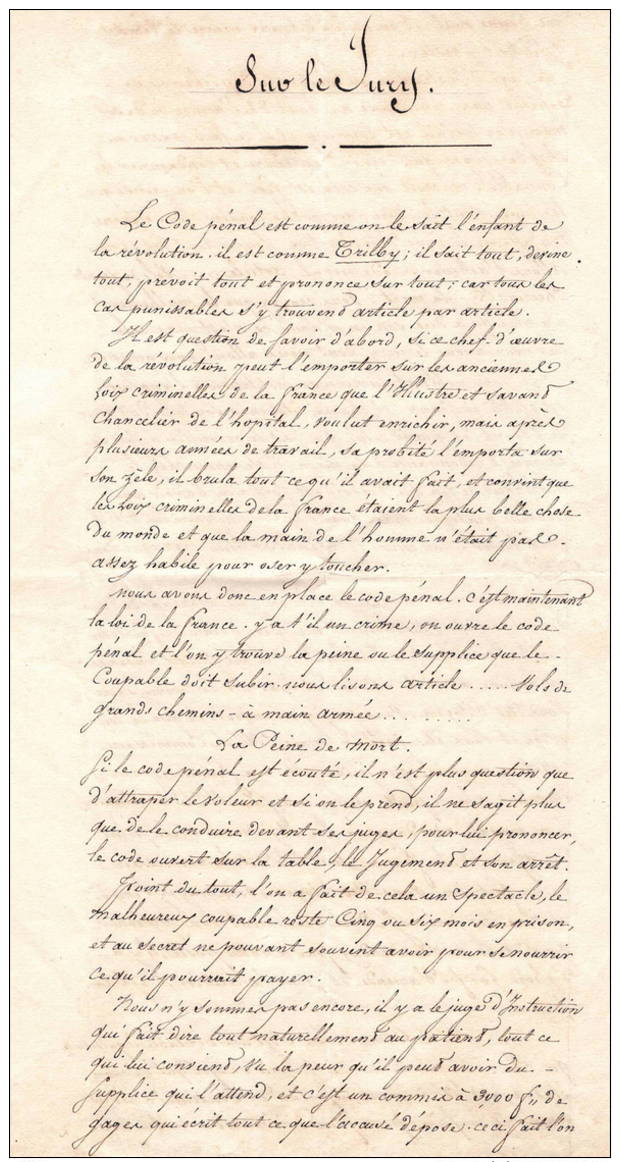 Sur le Jury.
Le Code pénal est comme on le sait l'enfant de
la révolution. il est comme Trilby; il sait tout, devine
tout, prévoit tout et prononce sur tout; car tous les
cas punissables s'y trouvent article par article.
Il est question de savoir d'abord, si ce chef d'œuvre
de la révolution peut l'emporter sur les anciennes
Loix criminelles de la france que l'Illustre et savant
Chancelier de l'hopital, voulut enrichir, mais après
plusieurs années de travail, sa probité l'emporta sur
son zèle, il brula tout ce qu'il avait fait, et convint que
les Loix criminelles de la france étaient la plus belle chose
du monde et que la main de l'homme n'était pas
assez habile pour oser y toucher.
nous avons donc en place le code pénal. c'est maintenant
la loi de la france. y a t'il un crime, on ouvre le code
pénal et l'on y trouve la peine ou le supplice que le
Coupable doit subir. nous lisons article ..... Vols de
grands chemins - à main armée... ......
La Peine de mort.
Si le code pénal est écouté, il n'est plus question que
d'attraper le voleur et si on le prend, il ne sagit plus
que de le conduire devant ses juges, pour lui prononcer,
le code ouvert sur la table, le Jugement et son arrêt.
Point du tout, l'on a fait de cela un Spectacle, le
malheureux coupable reste Cinq ou six mois en prison,
et au Secret ne pouvant souvent avoir pour se nourrir
ce qu'il pourrait payer.
Nous n'y sommes pas encore, il y a le juge d'Instruction
qui fait dire tout naturellement au patient, tout ce
qui lui convient, vu la peur qu'il peut avoir du
Supplice qui l'attend, et c'est un commis à 3,000 f,, de
gages qui écrit tout ce que l'acusé dépose. ceci fait l'on